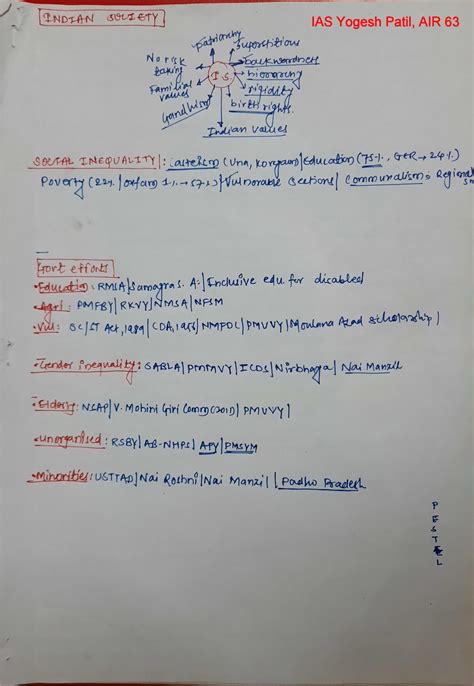 INDIAN SOCIETY
IAS Yogesh Patil, AIR 63
patriarchy
superstitions
No risk
taking
backwardness
I.S.
hierarchy
Familial
values
rigidity
birth rights.
Indian values
SOCIAL INEQUALITY: Casteism (Una, Koregaon) | Education (75%, GER → 24%)
Poverty (22% | oxfam 1% → 57%) | Vulnerable Sections | Communalism: Regional
Govt efforts
• Education: RMSA | Samagra S. A. | Inclusive edu for disabled
• Agri: PMFBY | RKVY | NMSA | NFSM
• Vul: SC/ST Act, 1989 | CDA, 1956 | NMFDC | PMVVY | Moulana Azad Scholarship |
• Gender inequality: SABLA | PMMVY | ICDS | Nirbhaya | Nai Manzil
• Elderly: NSAP | V. Mohini Giri Comm (2011) | PMVVY |
• Unorganised: RSBY | AB-NHPS | APY | PMSYM
• Minorities: USTTAD | Nai Roshni | Nai Manzil | Padho Pradesh
P
E
S
T
E
L